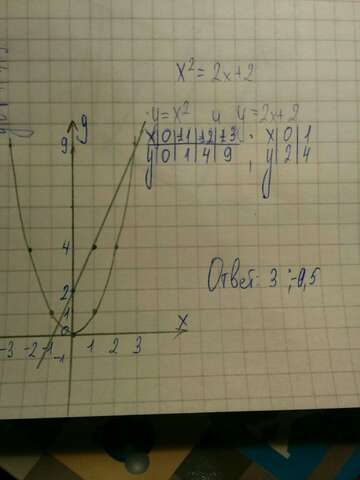 x² = 2x+2
y=x² и y=2x+2
x 0 ±1 ±2 ±3
y 0 1 4 9
x 0 1
y 2 4
Ответ: 3 ; -0,5
y
9
4
2
1
0
x
-3 -2 -1 1 2 3
-1